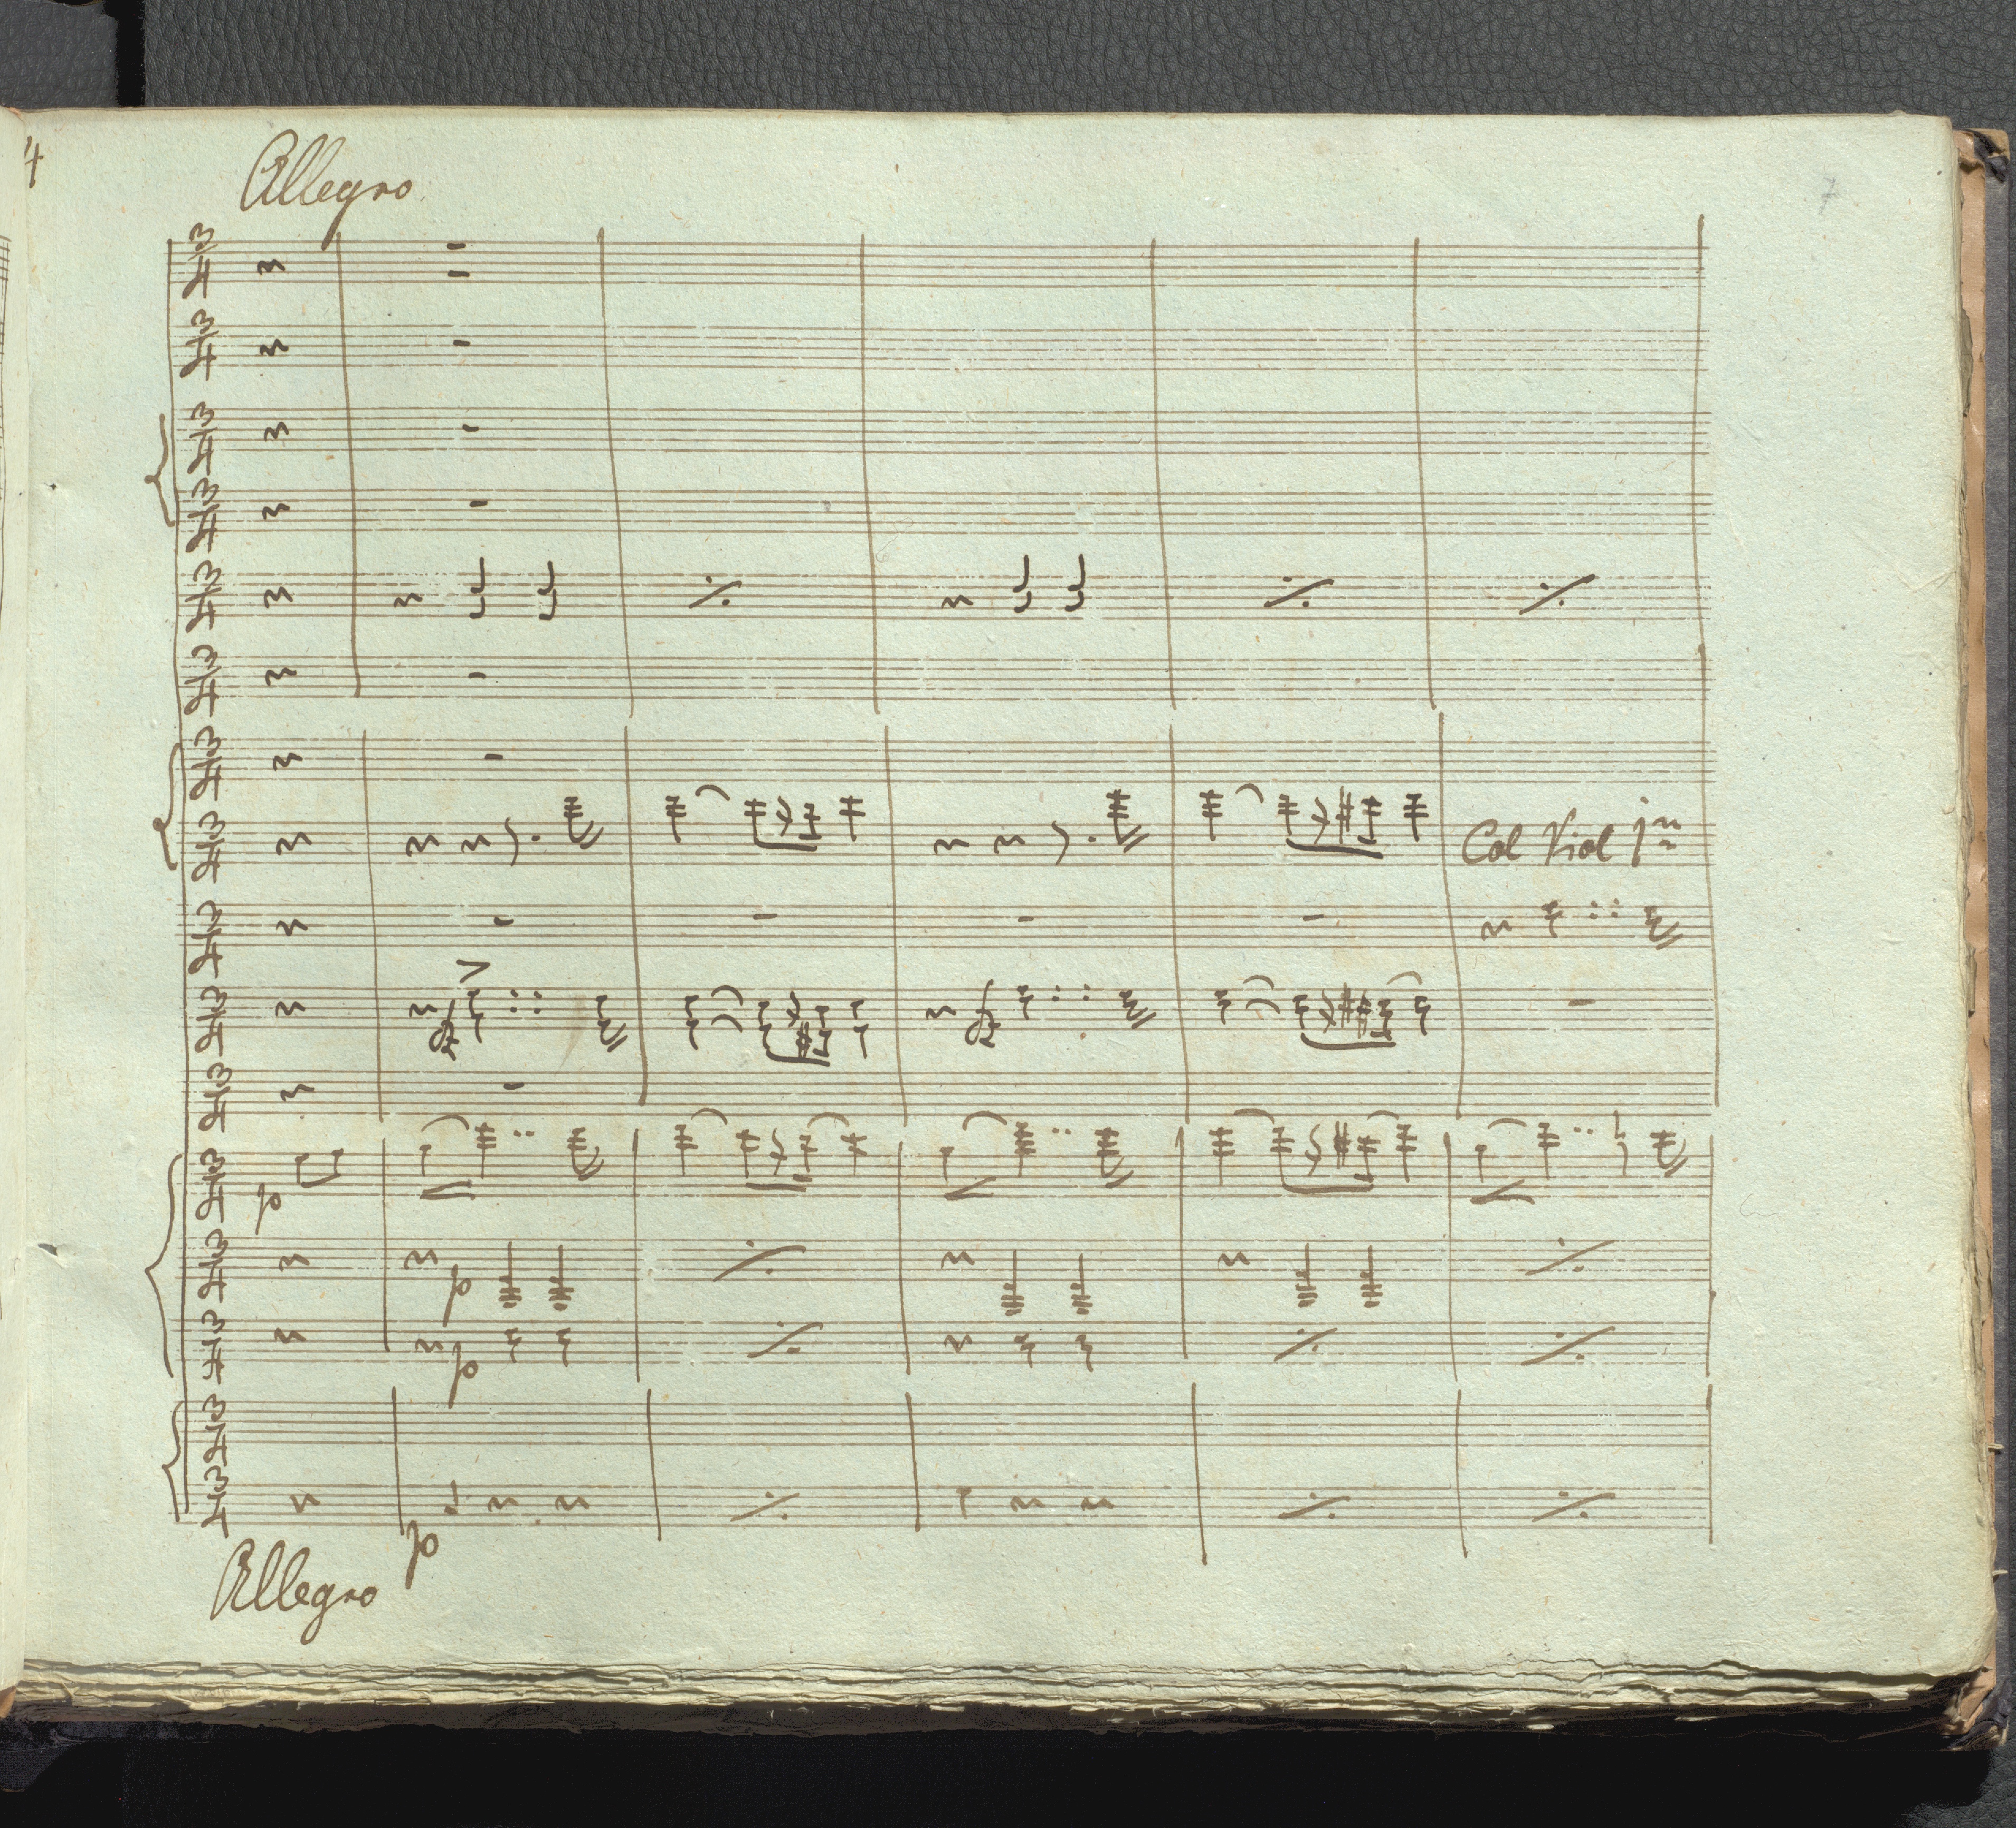 4
Allegro
7
Col Viol 1mo
p
p
p
p
Allegro